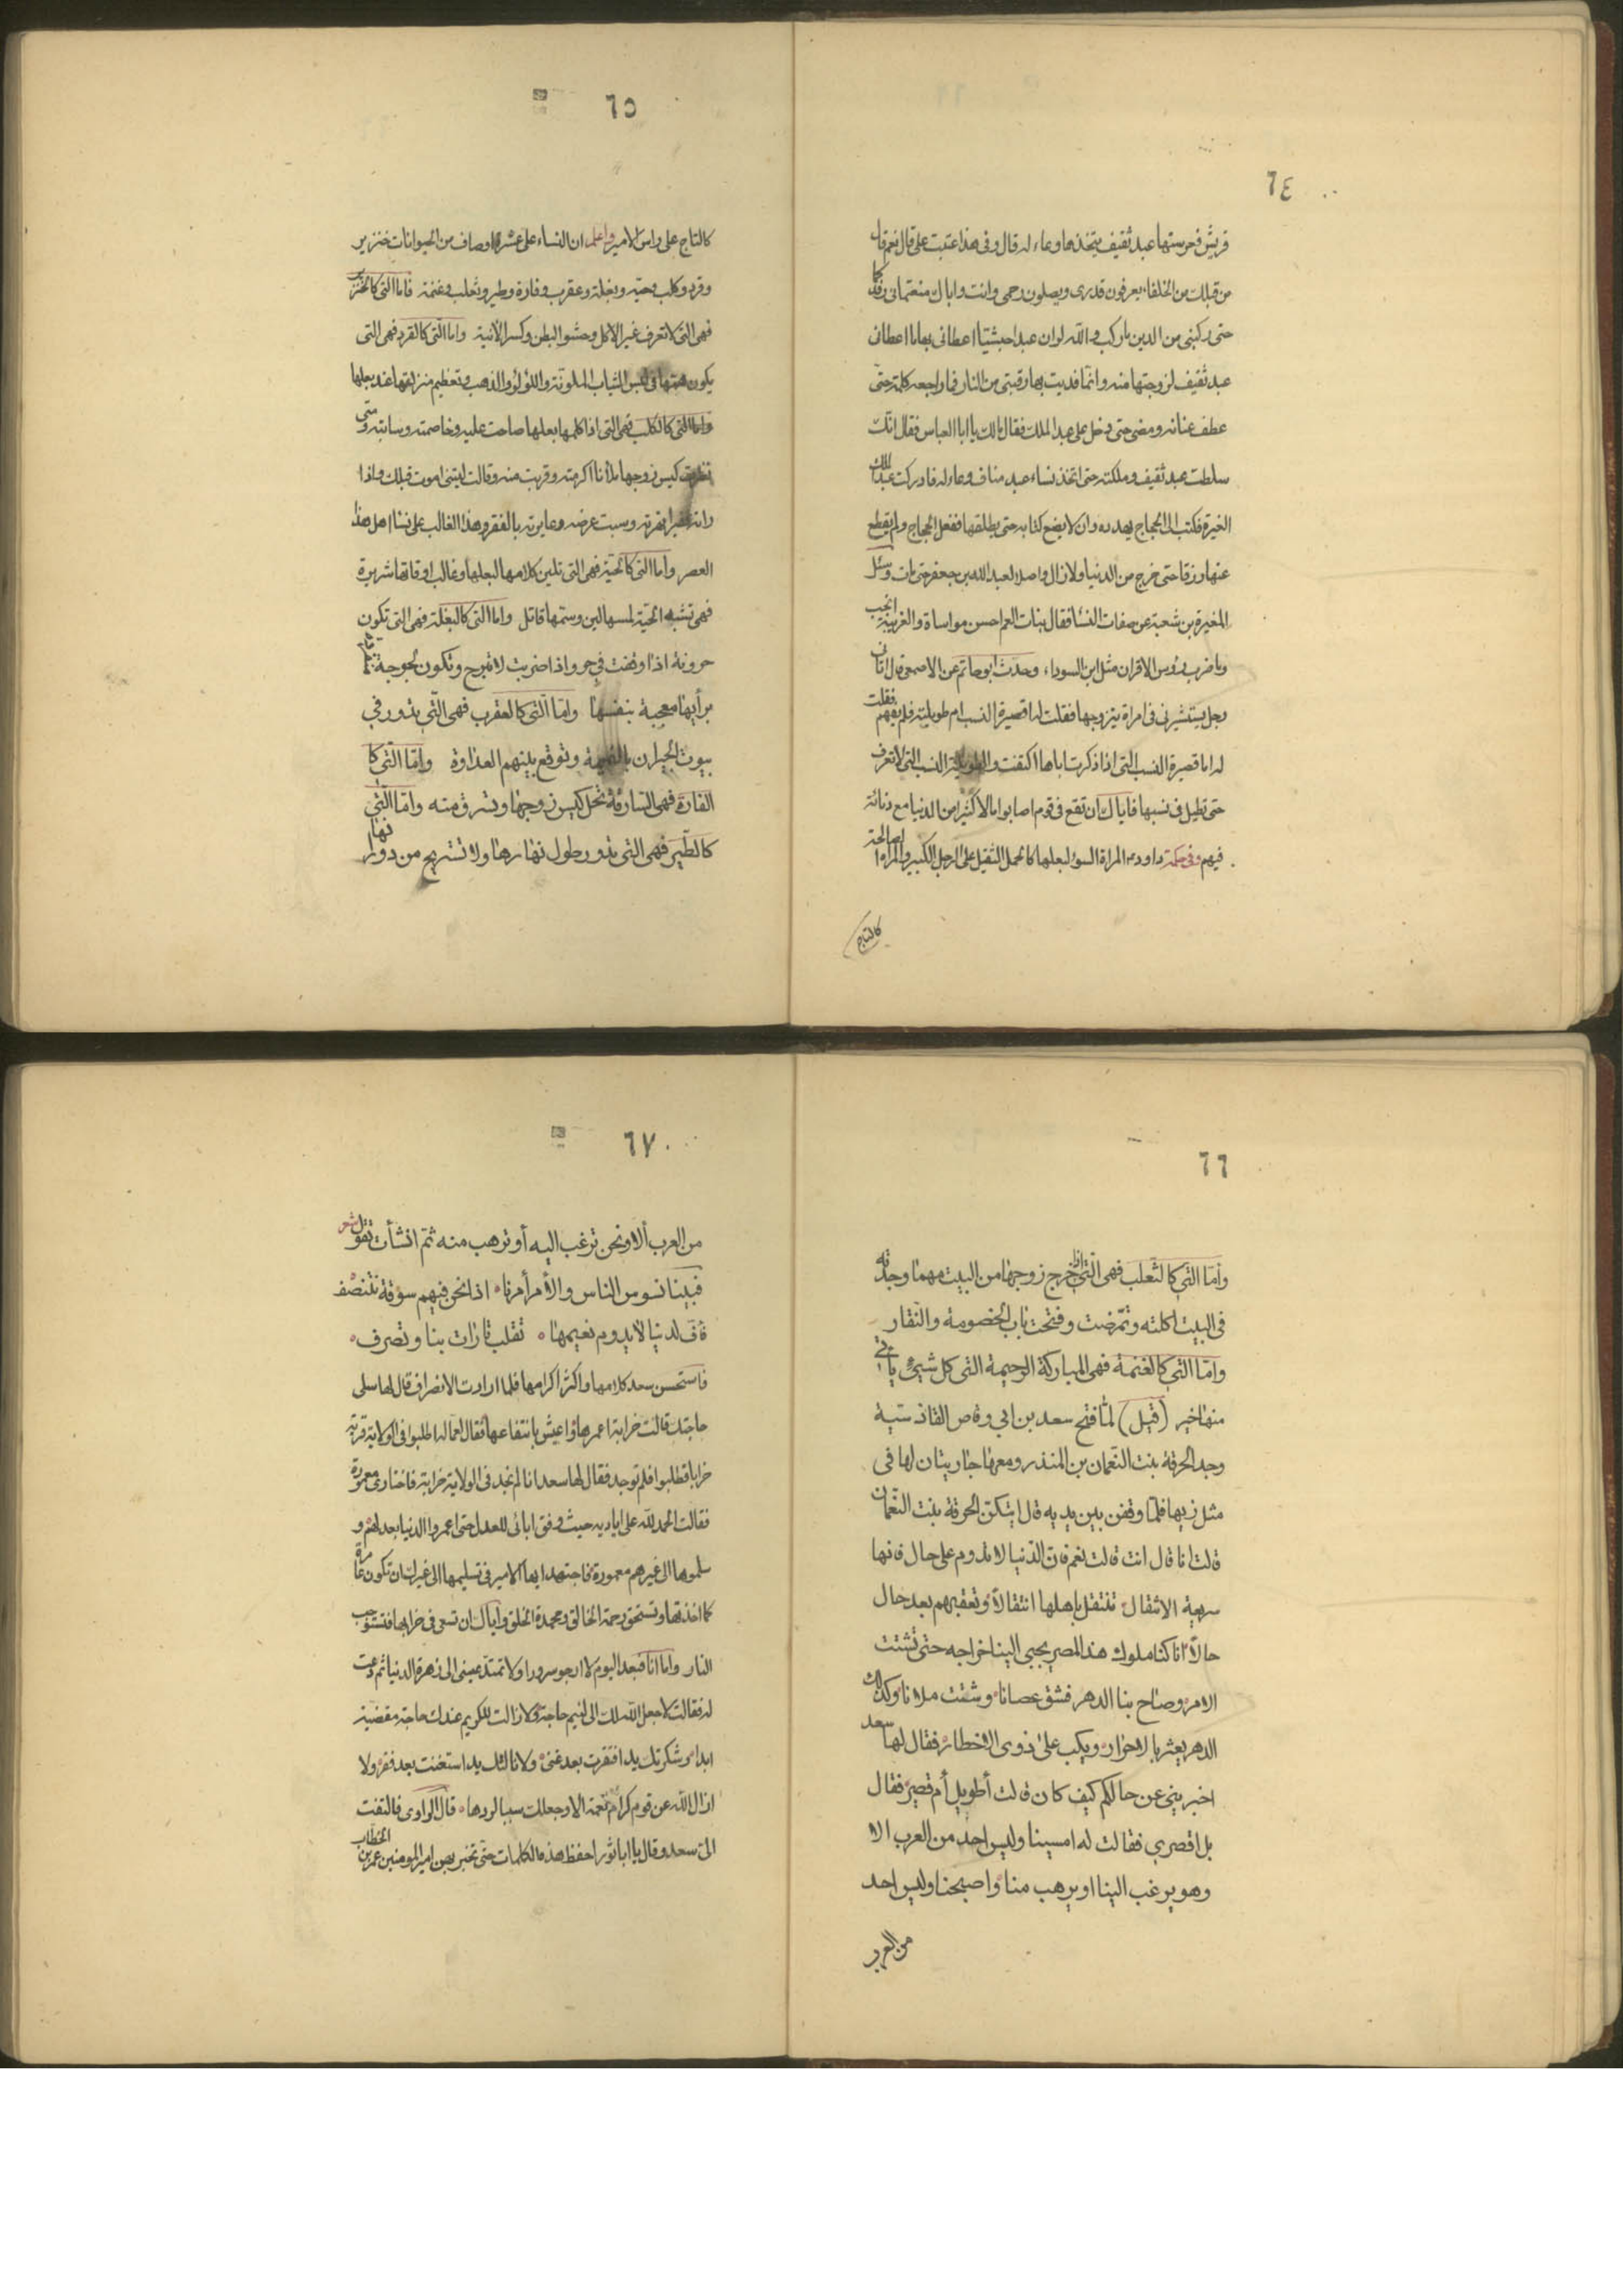 ٦٤
قريش فحرستها عبد ثقيف يتخذها وعاء له قال وفي هذا عتبت علي قال نعم قال
من قبلك من الخلفاء يعرفون قدري ويصلون رحمي وانت واباك منعتماني رفدكما
حتى ركبني من الدين ما ركب والله لو ان عبدا حبشتيا اعطاني بها ما اعطاني
عبد ثقيف لزوجتها منه وانما فديت بها رقبتي من النار فما راجعه كلمة حتى
عطف عنانه ومضى حتى دخل على عبد الملك فقال مالك يا ابا العباس فقال انك
سلطت عبد ثقيف وملكته حتى اتخذ نساء عبد مناف وعاء له فادركت عبد الملك
الغيرة فكتب الى الحجاج يهدده وان لا يضع كتابه حتى يطلقها ففعل الحجاج ولم يقطع
عنها رزقا حتى خرج من الدنيا ولا زال واصلا لعبد الله بن جعفر حتى مات وسئل
المغيرة بن شعبة عن صفات النسا فقال بنات العم احسن مواساة والغريبة انجب
وما ضرب رؤس الاقران مثل ابن السوداء وحدث ابو حاتم عن الاصمعي قال اتاني
رجل يستشيرني في امراة يتزوجها فقلت له اقصيرة النسب ام طويلته فلم يفهم فقلت
له اما قصيرة النسب التي اذا ذكرت اباها اكتفت والطويلة النسب التي لا تعرف
حتى تطيل في نسبها فاياك ان تقع في قوم اصابوا مالا كثيرا من الدنيا مع دنائة
فيهم وفي حكمة داود عم المراة السؤ لبعلها كالحمل الثقيل على الرجل الكبير والمراه الصالحة
كالتاج
٦٥
كالتاج على راس الامير واعلم ان النساء على عشرة اوصاف من الحيوانات خنزير
وقرد وكلب وحية وبغلة وعقرب وفارة وطير وثعلب وغنمة فاما التي كالخنزير
فهي التي لا تعرف غير الاكل وحشو البطن وكسر الآنية واما التي كالقرد فهي التي
يكون همتها في لبس الثياب الملونة واللؤلؤ والذهب وتعظيم منزلتها عند بعلها
واما التي كالكلب فهي التي اذا كلمها بعلها صاحت عليه وخاصمته وسابته ومتى
نظرت كيس زوجها ملأنا اكرمته وقربت منه وقالت ليتني اموت قبلك واذا
راته فقيرا نهرته وسبت عرضه وعايرته بالفقر وهذا الغالب على نسا اهل هذا
العصر واما التي كالحية فهي التي تلين كلامها لبعلها وغالب اوقاتها شريرة
فهي تشبه الحية لمسها لين وسمها قاتل واما التي كالبغلة فهي التي تكون
حرونة اذا وقفت في حر واذا ضربت لا تبرح وتكون لجوجة قائمة
برأيها معجبة بنفسها وامّا التي كالعقرب فهي التي تدور في
بيوت الجيران بالنميمة وتوقع بينهم العداوة وامّا التي كا
الفارة فهي السارقة تحل كيس زوجها وتسرق منه وامّا التي
كالطير فهي التي تدور طول نهارها ولا تستريح من دورانها
٦٦
وأما التي كالثعلب فهي التي اذا خرج زوجها من البيت مهما وجدته
في البيت اكلته وتمرضت وفتحت باب الخصومة والنقار
وامّا التي كالغنمة فهي المباركة الرحيمة التي كل شيئ ياتي
منها خير (قيل) لمّا فتح سعد بن ابي وقاص القادسية
وجد الحرقة بنت النعمان بن المنذر ومعها جاريتان لها في
مثل زيها فلمّا وقفن بين يديه قال ايتكن الحرقة بنت النعمان
قالت انا قال انت قالت نعم فان الدنيا لا تدوم على حال فانها
سريعة الانتقال تنتقل باهلها انتقالاً وتعقبهم بعد حال
حالاً انا كنا ملوك هذا المصر يجبى الينا خراجه حتى تشتت
الامر وصاح بنا الدهر فشق عصانا وشتت ملانا وكذلك
الدهر يعثر بالاحرار ويكب على ذوى الاخطار فقال لها سعد
اخبريني عن حالكم كيف كان قالت أطويل أم قصير فقال
بل اقصري فقالت له امسينا وليس احد من العرب الا
وهو يرغب الينا او يرهب منا واصبحنا وليس احد
من العرب
٦٧
من العرب ألا ونحن نرغب اليه أو نرهب منه ثم انشأت تقول شعر
فبينا نسوس الناس والأمر أمرنا ۰ اذا نحن فيهم سوقة نتنصّف
فاف لدنيا لا يدوم نعيمها ۰ تقلب تارات بنا وتصرف ۰
فاستحسن سعد كلامها واكثر اكرامها فلما ارادت الانصراف قال لها سلى
حاجتك قالت خرابة اعمرها واعيش بانتفاعها فقال لعماله اطلبوا في الولاية قرية
خرابا فطلبوا فلم توجد فقال لها سعد انا لم نجد في الولاية خرابة فاختارى معمورة
فقالت الحمد لله على اياديه حيث وفق ابائى للعدل حتى اعمروا الدنيا بعدلهم و
سلموها الى غيرهم معمورة فاجتهد ايها الامير في تسليمها الى غيرك ان تكون عامرة
كما اخذتها وتستحق رحمة الخالق ومحمدة الخلق واياك ان تسعى في خرابها فتستوجب
النار واما انا فبعد اليوم لا ارجو سرورا ولا تمتد عيني الى زهرة الدنيا ثم دعت
له فقالت لا جعل الله لك الى لئيم حاجة ولا زالت للكريم عندك حاجة مقضية
ابدا وشكرتك يد افتقرت بعد غنى ولا نالتك يد استغنت بعد فقر ولا
ازال الله عن قوم كرام نعمة الا وجعلك سببا لردها ۰ قال الراوى فالتفت
الىّ سعد وقال يا ابا ثور احفظ هذه الكلمات حتى تخبر بهن امير المومنين عمر بن الخطاب